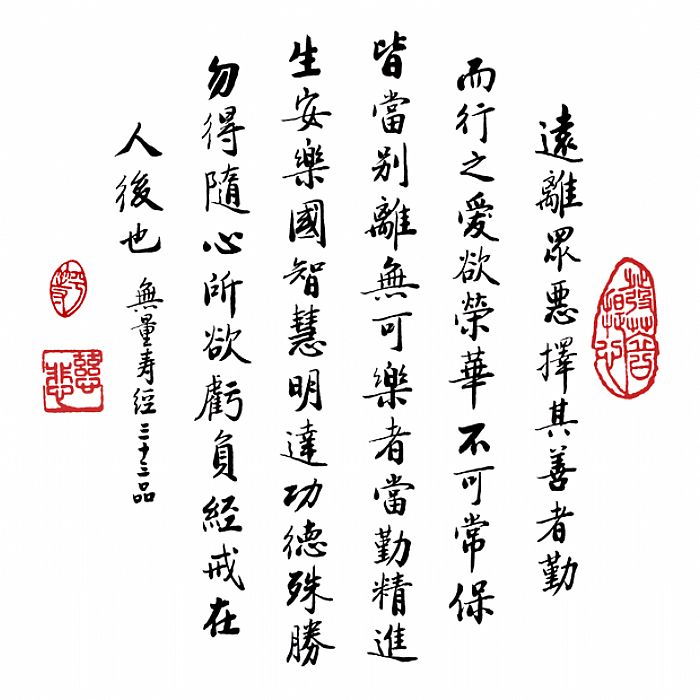 發菩提心
遠離眾惡擇其善者勤
而行之愛欲榮華不可常保
皆當別離無可樂者當勤精進
生安樂國智慧明達功德殊勝
勿得隨心所欲虧負經戒在
人後也
無量寿經三十三品
慈悲